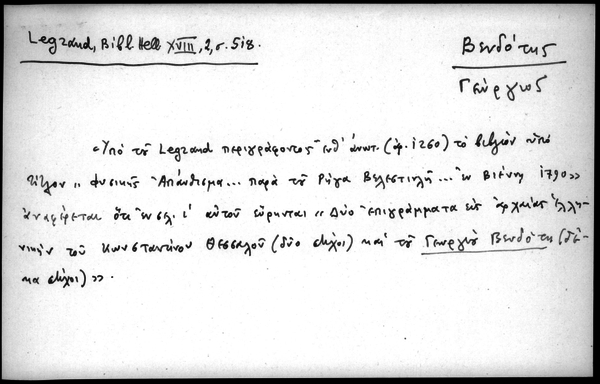 Legrand, Bibl. Hell. XVIII, 2, σ. 518.
Βενδότης
Γεώργιος
«Ὑπὸ τοῦ Legrand περιγράφοντος ἐνθ' ἀνωτ. (ἀρ. 1260) τὸ βιβλίον ὑπὸ
τίτλον „ Φυσικῆς Ἀπάνθισμα... παρὰ τοῦ Ρήγα Βελεστινλῆ... ἐν Βιέννῃ 1790»
ἀναφέρεται ὅτι ἐν σελ. ι' αὐτοῦ εὕρηνται „ Δύο ἐπιγράμματα εἰς ἀρχαίαν Ἑλλη-
νικὴν τοῦ Κωνσταντίνου Θεσσαλοῦ (δύο στίχοι) καὶ τοῦ Γεωργίου Βενδότη (δέ-
κα στίχοι) ».